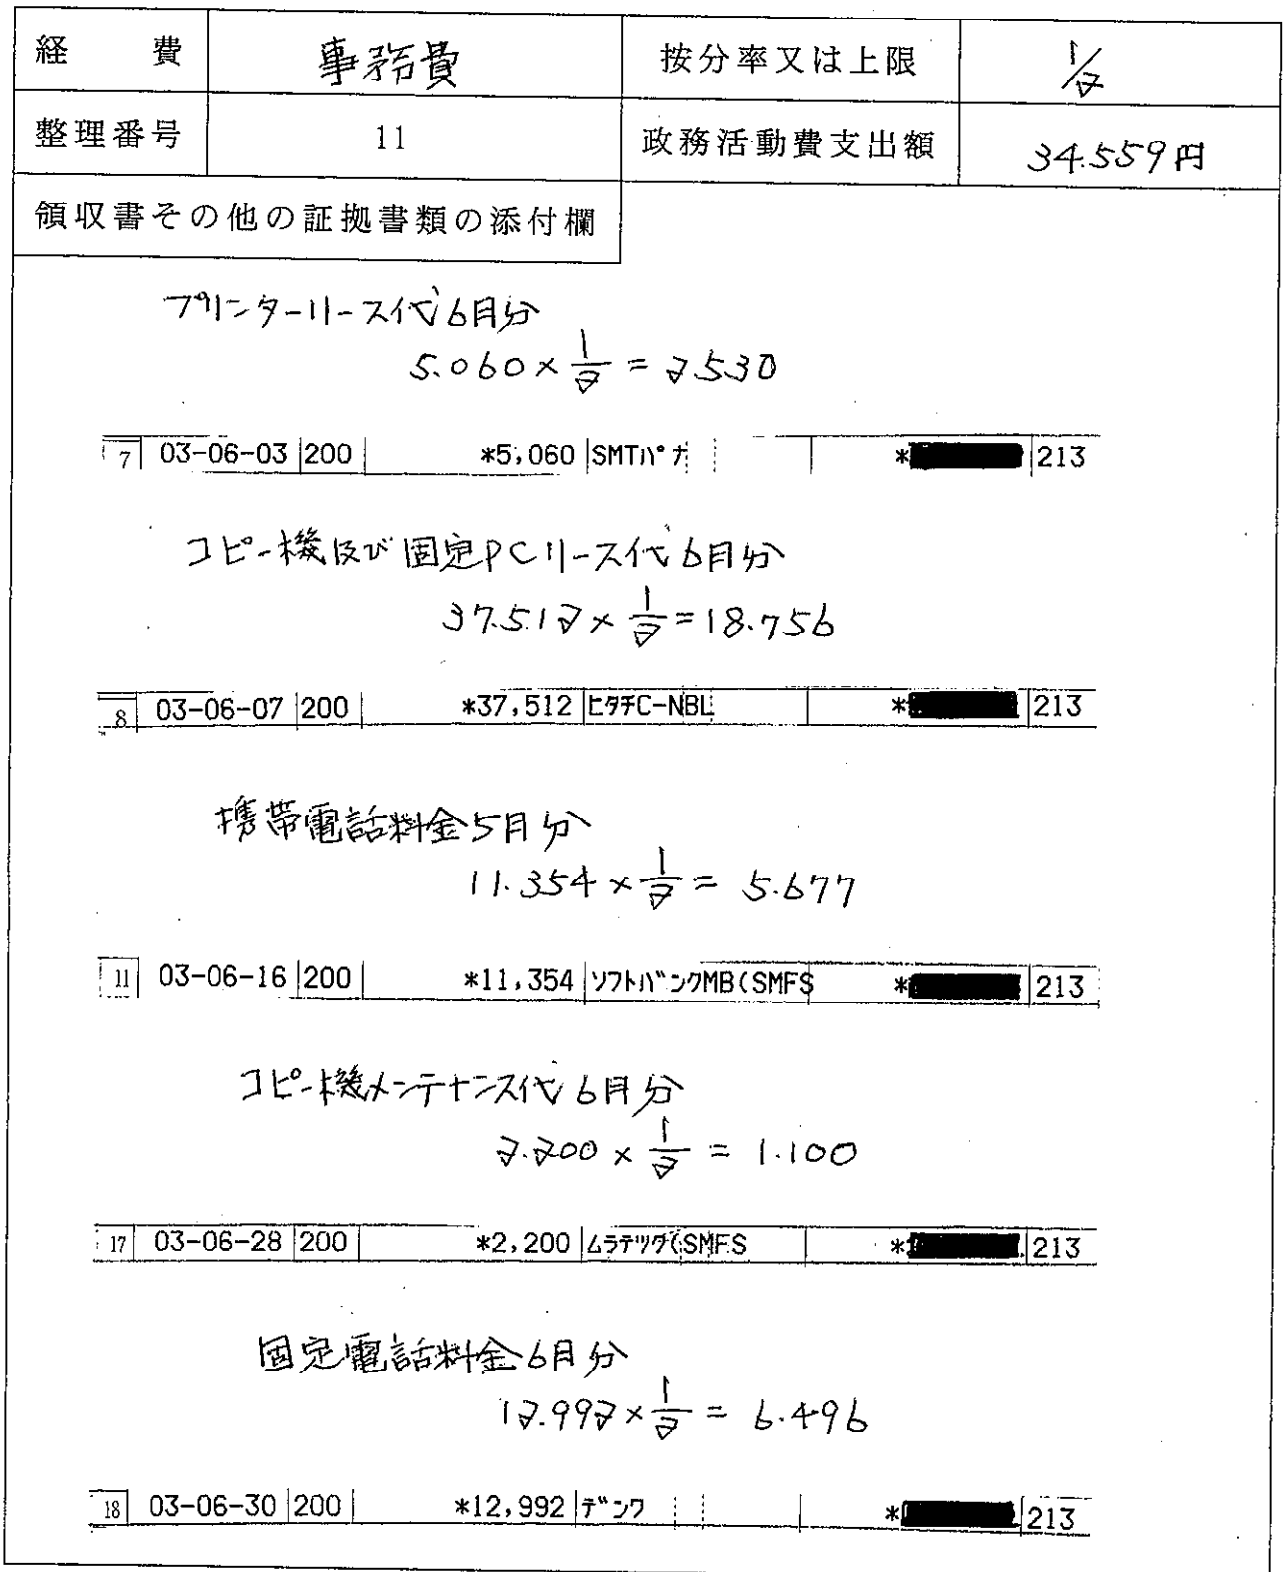 経 費 事務費 按分率又は上限 1/2
整理番号 11 政務活動費支出額 34.559円
領収書その他の証拠書類の添付欄
プリンターリース代6月分
5.060×1/2=2530
7 03-06-03 200 *5,060 SMTパナ * 213
コピー機及び固定PCリース代6月分
37.512×1/2=18.756
8 03-06-07 200 *37,512 ヒタチC-NBL * 213
携帯電話料金5月分
11.354×1/2=5.677
11 03-06-16 200 *11,354 ソフトバンクMB(SMFS * 213
コピー機メンテナンス代6月分
2.200×1/2=1.100
17 03-06-28 200 *2,200 ムラテツグ(SMFS * 213
固定電話料金6月分
12.992×1/2=6.496
18 03-06-30 200 *12,992 デンワ * 213